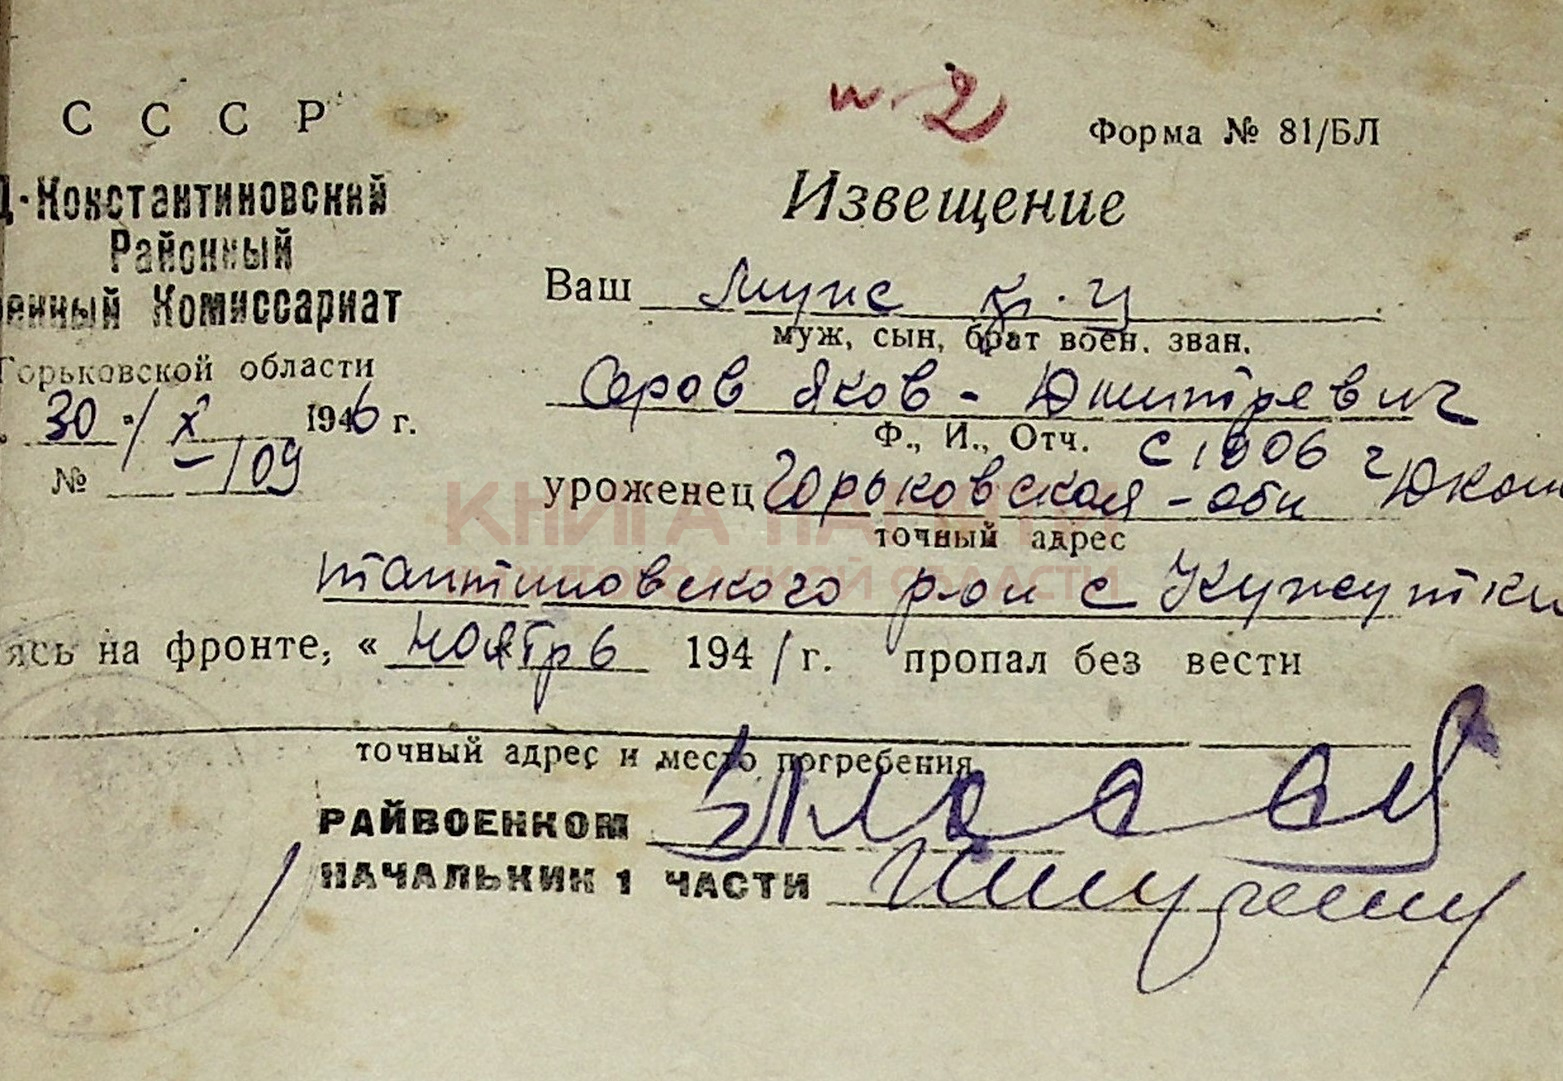 СССР
Д-Константиновский
Районный
енный Комиссариат
Горьковской области
30 / X 1946 г.
№ -109
№ 2
Форма № 81/БЛ
Извещение
Ваш муж кр-ц
муж, сын, брат воен. зван.
Серов Яков - Дмитревич
Ф., И., Отч. с 1906 г
уроженец Горьковская - обл Дконс
точный адрес
тантиновского р-он с Кужутки
КНИГА ПАМЯТИ
НИЖЕГОРОДСКОЙ ОБЛАСТИ
ясь на фронте, « Ноябрь 1941 г. пропал без вести
точный адрес и место погребения
РАЙВОЕНКОМ
НАЧАЛЬНИК 1 ЧАСТИ